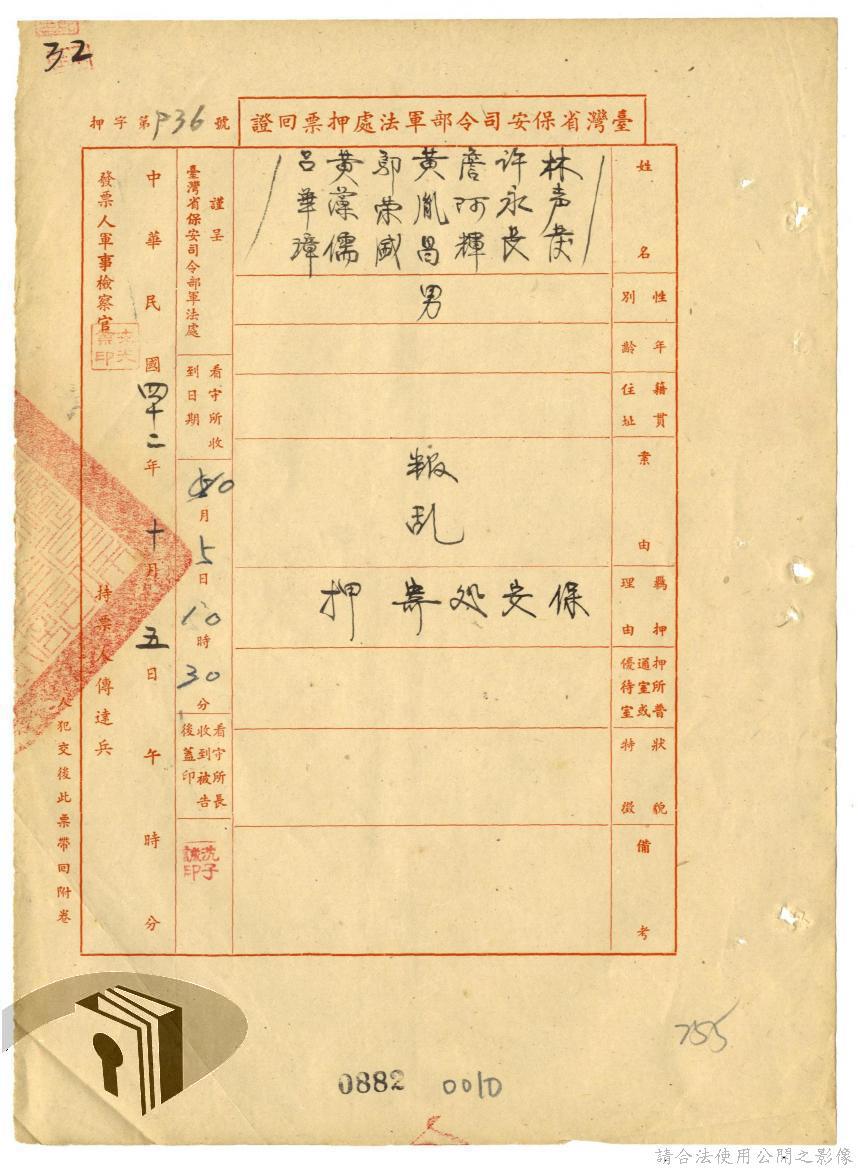 32
臺灣省保安司令部軍法處押票回證
押字第936號
姓名
林声發
許永長
詹阿輝
黃胤昌
郭荣盛
黃藻儒
呂華璋
性別
男
年齡
籍貫
住址
案由
叛乱
羈押
理由
保安处寄押
押所普
通室或
優待室
狀貌
特徵
備考
謹呈
臺灣省保安司令部軍法處
看守所收
到日期
10月5日10時30分
看守所長
收到被告
後蓋印
中華民國四十二年十月五日午時分
發票人軍事檢察官
持票人傳達兵
人犯交後此票帶回附卷
755
0882
0010
請合法使用公開之影像